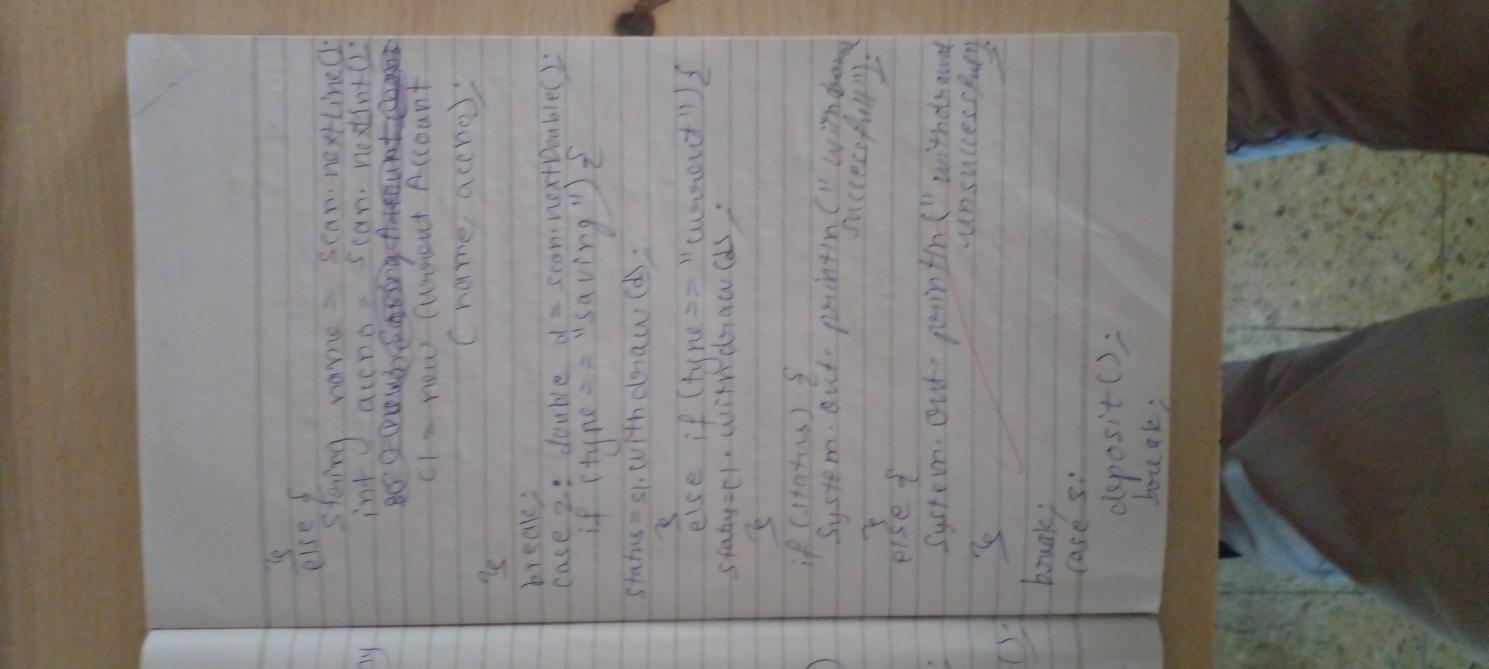 }
else {
String name = scan.nextLine();
int accno = scan.nextInt();
c1 = new Current Account
(name, accno);
}
break;
case 2: double d = scan.nextDouble();
if (type == "saving") {
status = s1.withdraw(d);
}
else if (type == "current") {
status = c1.withdraw(d);
}
if (status) {
System.out.println("withdrawal
successfull");
}
else {
System.out.println("withdrawal
unsuccessfull");
}
break;
case 3:
deposit();
break;